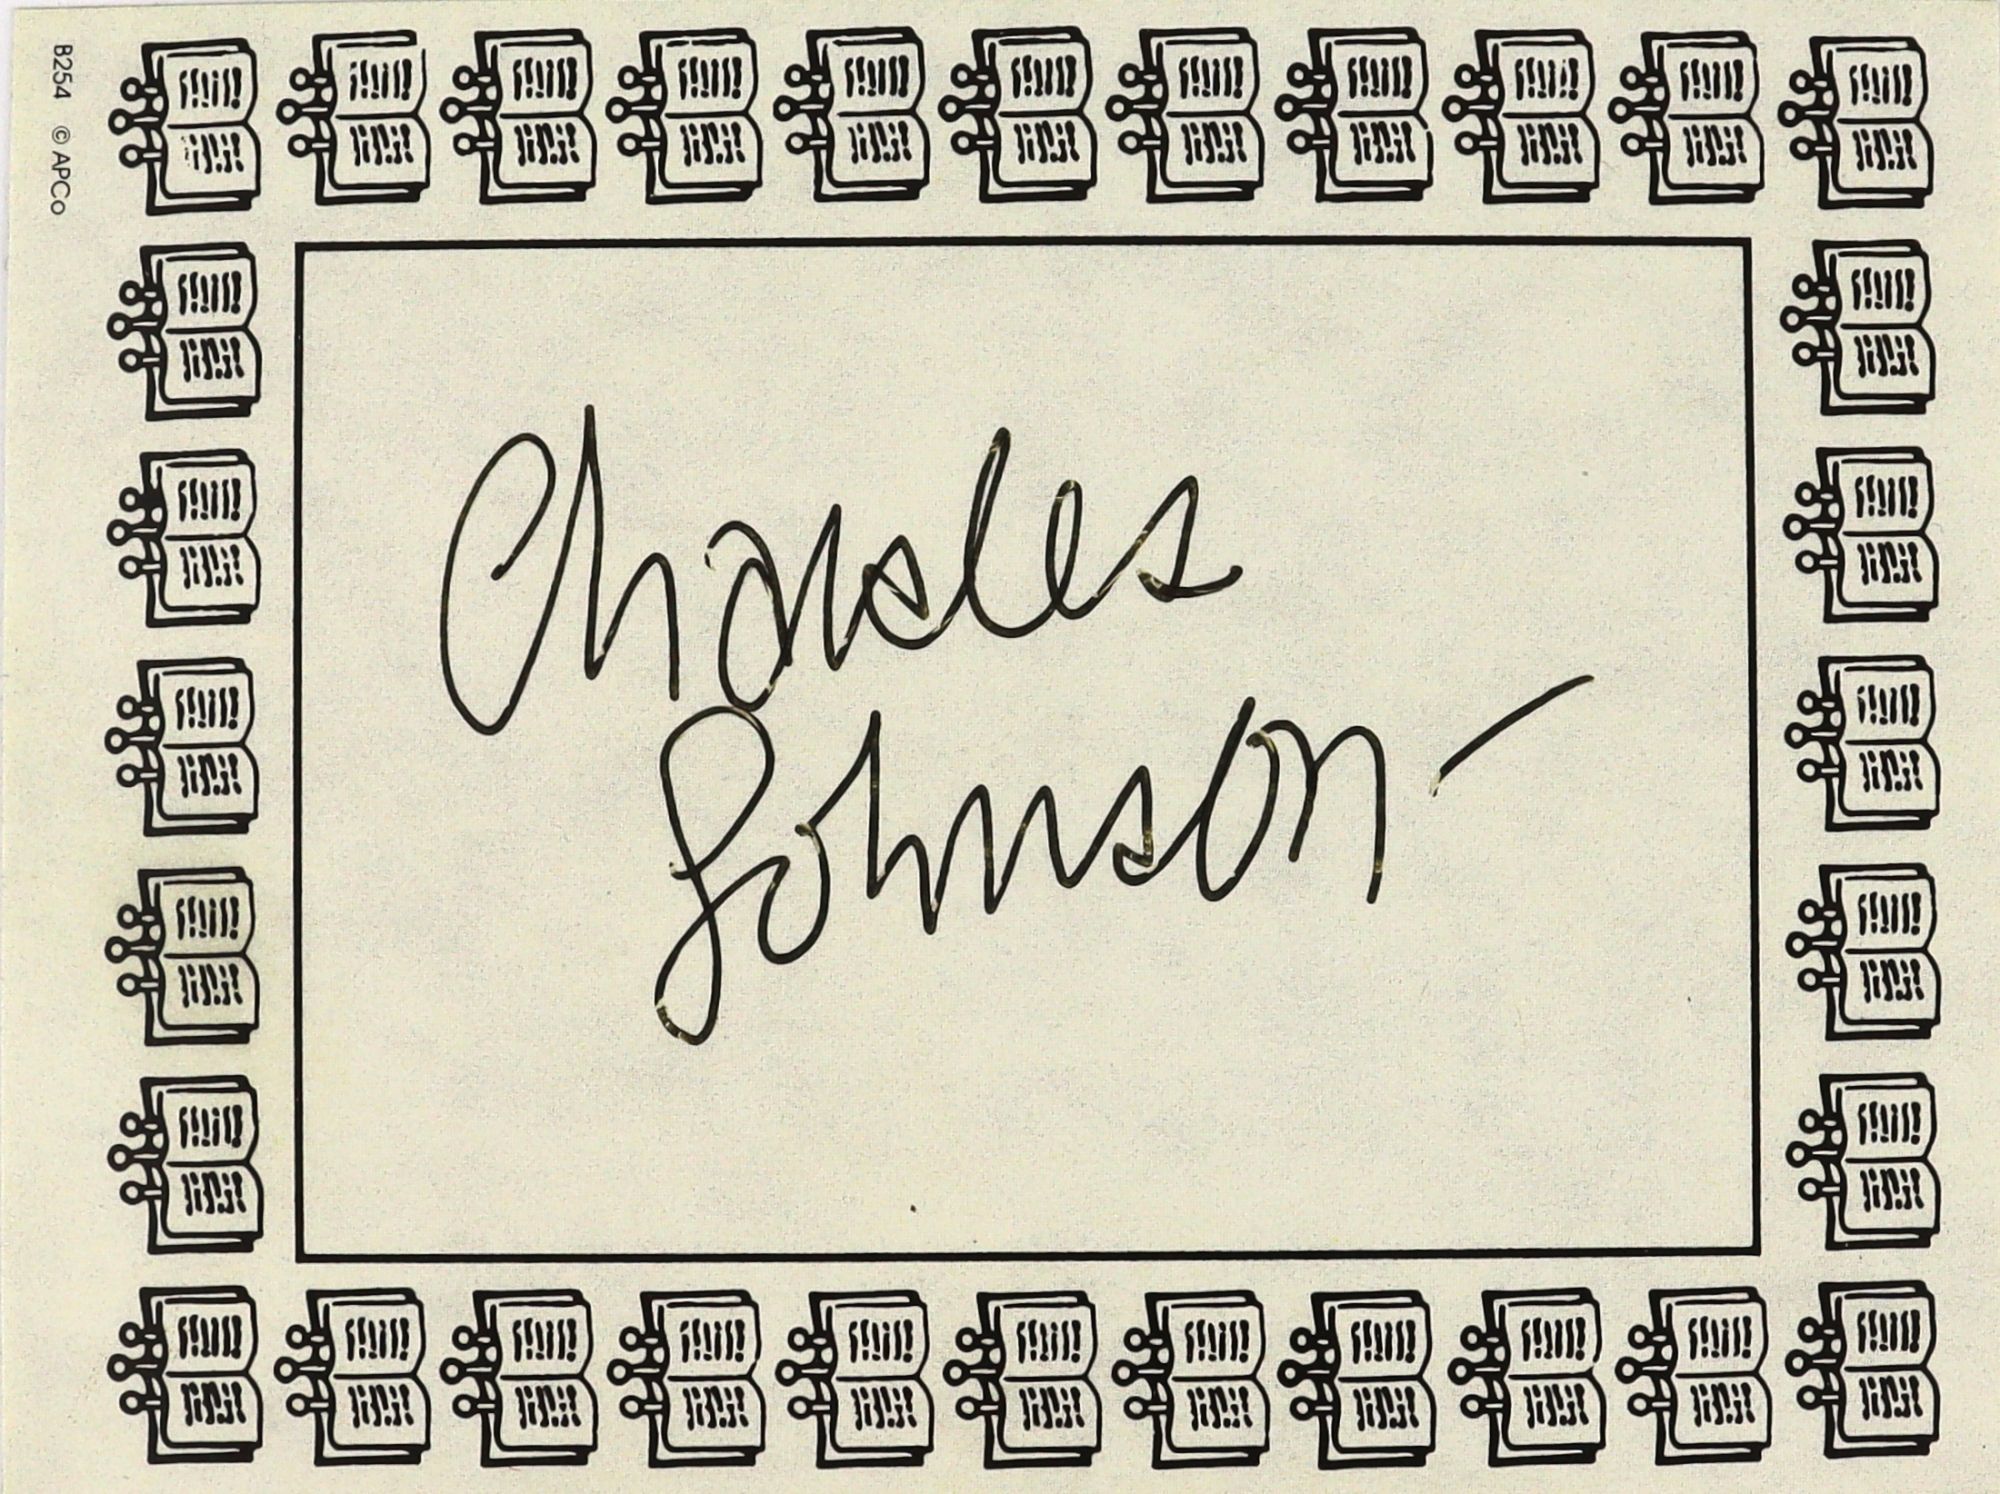 B254 © APCo
Charles
Johnson